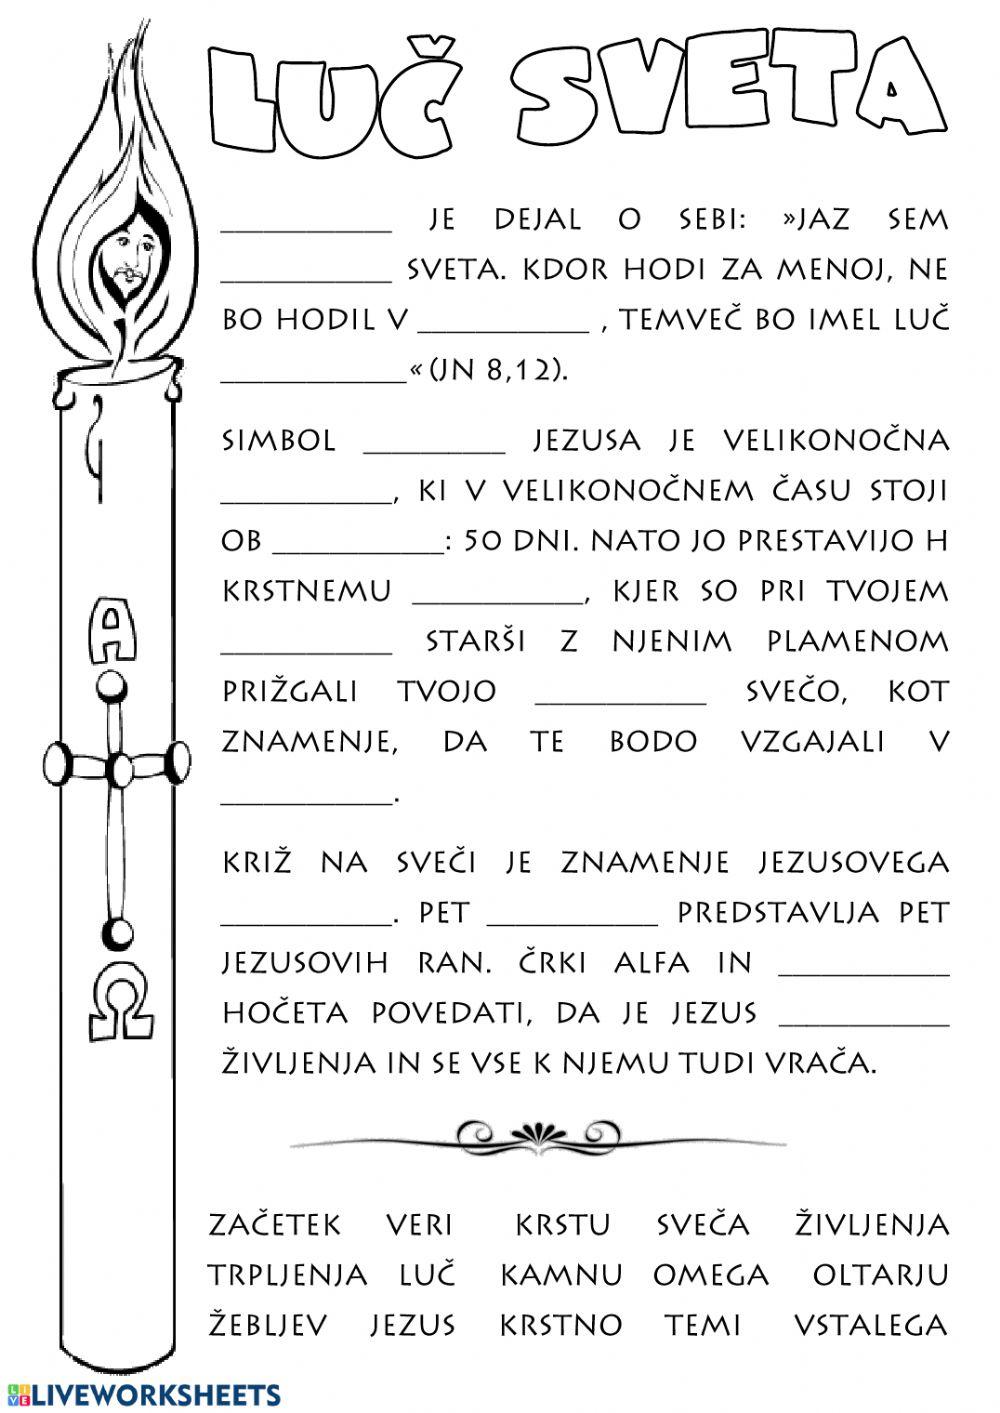 LUČ SVETA
____________ JE DEJAL O SEBI: »JAZ SEM
____________ SVETA. KDOR HODI ZA MENOJ, NE
BO HODIL V ____________ , TEMVEČ BO IMEL LUČ
_____________« (JN 8,12).
SIMBOL __________ JEZUSA JE VELIKONOČNA
____________, KI V VELIKONOČNEM ČASU STOJI
OB ____________: 50 DNI. NATO JO PRESTAVIJO H
KRSTNEMU ____________, KJER SO PRI TVOJEM
____________ STARŠI Z NJENIM PLAMENOM
PRIŽGALI TVOJO ____________ SVEČO, KOT
ZNAMENJE, DA TE BODO VZGAJALI V
____________.
KRIŽ NA SVEČI JE ZNAMENJE JEZUSOVEGA
____________. PET ____________ PREDSTAVLJA PET
JEZUSOVIH RAN. ČRKI ALFA IN ____________
HOČETA POVEDATI, DA JE JEZUS ____________
ŽIVLJENJA IN SE VSE K NJEMU TUDI VRAČA.
A
Ω
ZAČETEK VERI KRSTU SVEČA ŽIVLJENJA
TRPLJENJA LUČ KAMNU OMEGA OLTARJU
ŽEBLJEV JEZUS KRSTNO TEMI VSTALEGA
LIVE LIVEWORKSHEETS